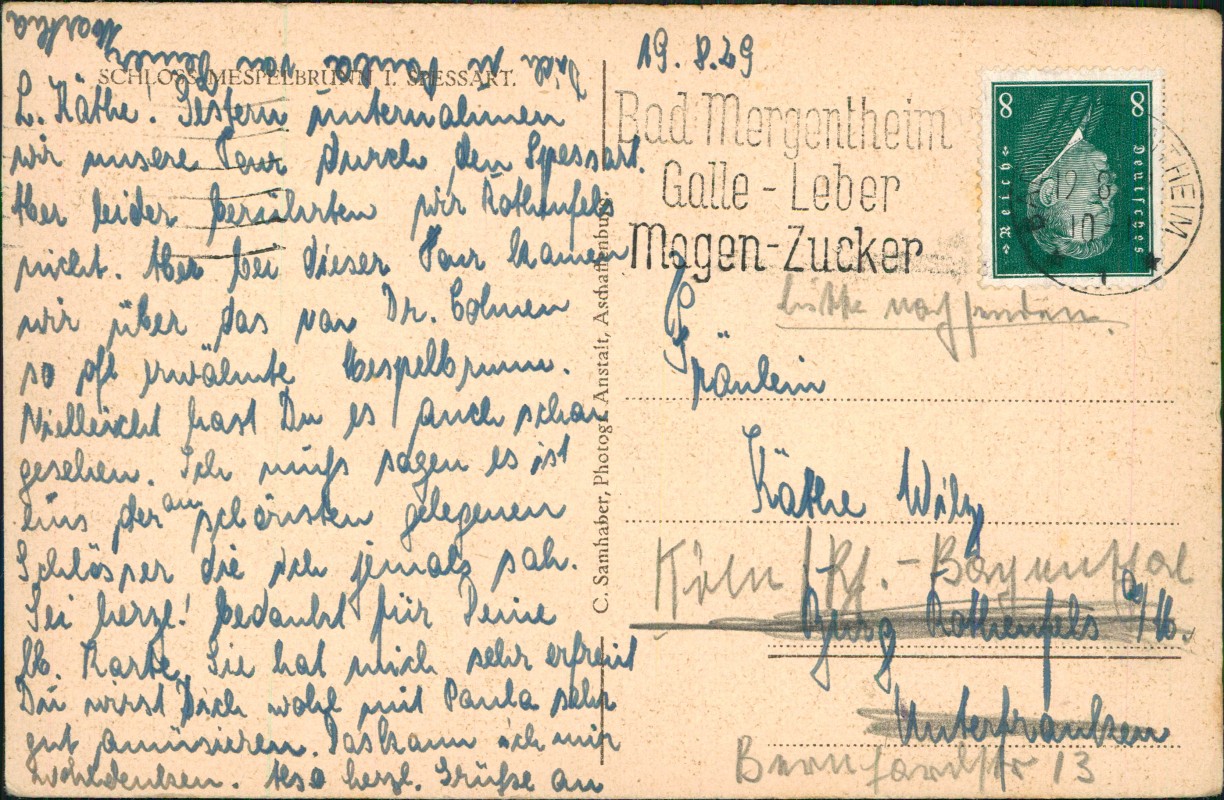 SCHLOSS MESPELBRUNN I. SPESSART.
L. Käthe! Gestern unternahmen
wir unsere Tour durch den Spessart.
Aber leider berührten wir Rothenfels
nicht. Aber bei dieser Tour kamen
wir über das von Dr. Cohnen
so oft erwähnte Mespelbrunn.
Vielleicht hast Du es auch schon
gesehen. Ich muß sagen es ist
eins der am schönsten gelegenen
Schlösser die ich jemals sah.
Sei herzl! bedankt für Deine
lb. Karte, Sie hat mich sehr erfreut
Du wirst Dich wohl mit Paula sehr
gut amüsieren. Das kann ich mir
wohl denken. Also herzl. Grüße an
Dich u. Paula von Deiner
Martha
C. Samhaber, Photogr. Anstalt, Aschaffenburg.
19.8.29
Bad Mergentheim
Galle-Leber
Magen-Zucker
8 8
Deutsches
Reich
bitte nachsenden.
Fräulein
Käthe Wilz
Köln /Rh.-Bayenthal
Burg Rothenfels a/M.
Unterfranken
Bernhardstr 13